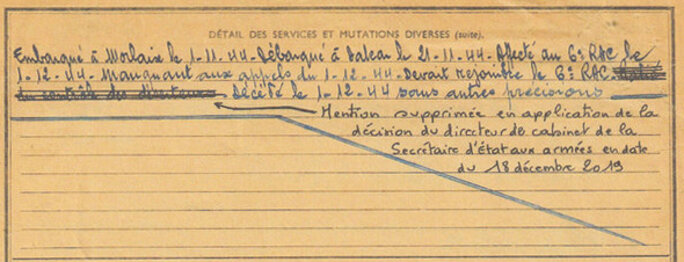 DÉTAIL DES SERVICES ET MUTATIONS DIVERSES (suite).
Embarqué à Morlaix le 1-11-44-Débarqué à Dakar le 21-11-44-Affecté au 6° RAC le
1-12-44-Manquant aux appels du 1-12-44 Devant rejoindre le 6° RAC
du contrôle des déserteurs - Décédé le 1-12-44 sans autres précisions
Mention supprimée en application de la
décision du directeur de cabinet de la
Secrétaire d'État aux armées en date
du 18 décembre 2019